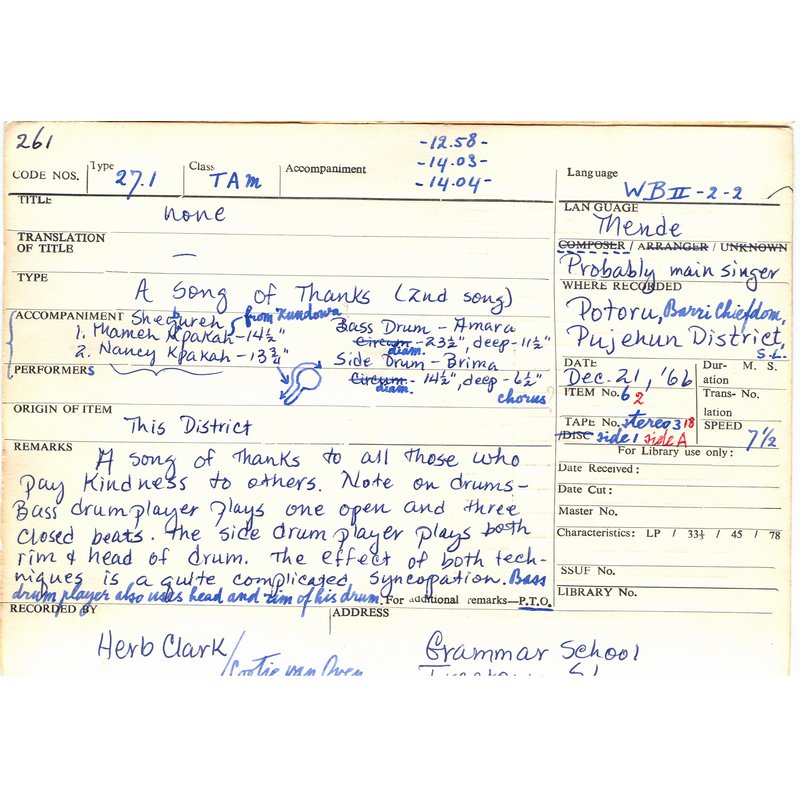 261
-12.58-
-14.03-
-14.04-
CODE NOS. Type 27.1 Class TAM Accompaniment
Language WB II-2-2
TITLE none
LANGUAGE Mende
TRANSLATION OF TITLE —
COMPOSER / ARRANGER / UNKNOWN
Probably main singer
TYPE A Song of Thanks (2nd song)
WHERE RECORDED
Potoru, Barri Chiefdom,
Pujehun District, S.L.
ACCOMPANIMENT Shegureh
1. Mameh Kpakah-14½" from Kundowa
2. Nancy Kpakah-13¾"
Bass Drum - Amara
Circum. diam. -23½", deep-11½"
Side Drum - Brima
Circum. diam. - 14½", deep-6½"
chorus?
PERFORMERS
DATE Dec. 21, '66
Duration M. S.
ITEM No. 6 2
Trans- No.
lation
TAPE No. stereo 3 18
/DISC side 1 side A
SPEED 7½
ORIGIN OF ITEM This District
REMARKS
A song of thanks to all those who
pay kindness to others. Note on drums-
Bass drum player plays one open and three
closed beats. the side drum player plays both
rim & head of drum. The effect of both tech-
niques is a quite complicated syncopation. Bass
drum player also uses head and rim of his drum.
For additional remarks—P.T.O.
For Library use only:
Date Received:
Date Cut:
Master No.
Characteristics: LP / 33⅓ / 45 / 78
SSUF No.
LIBRARY No.
RECORDED BY Herb Clark/
Cootje van Oven
ADDRESS Grammar School